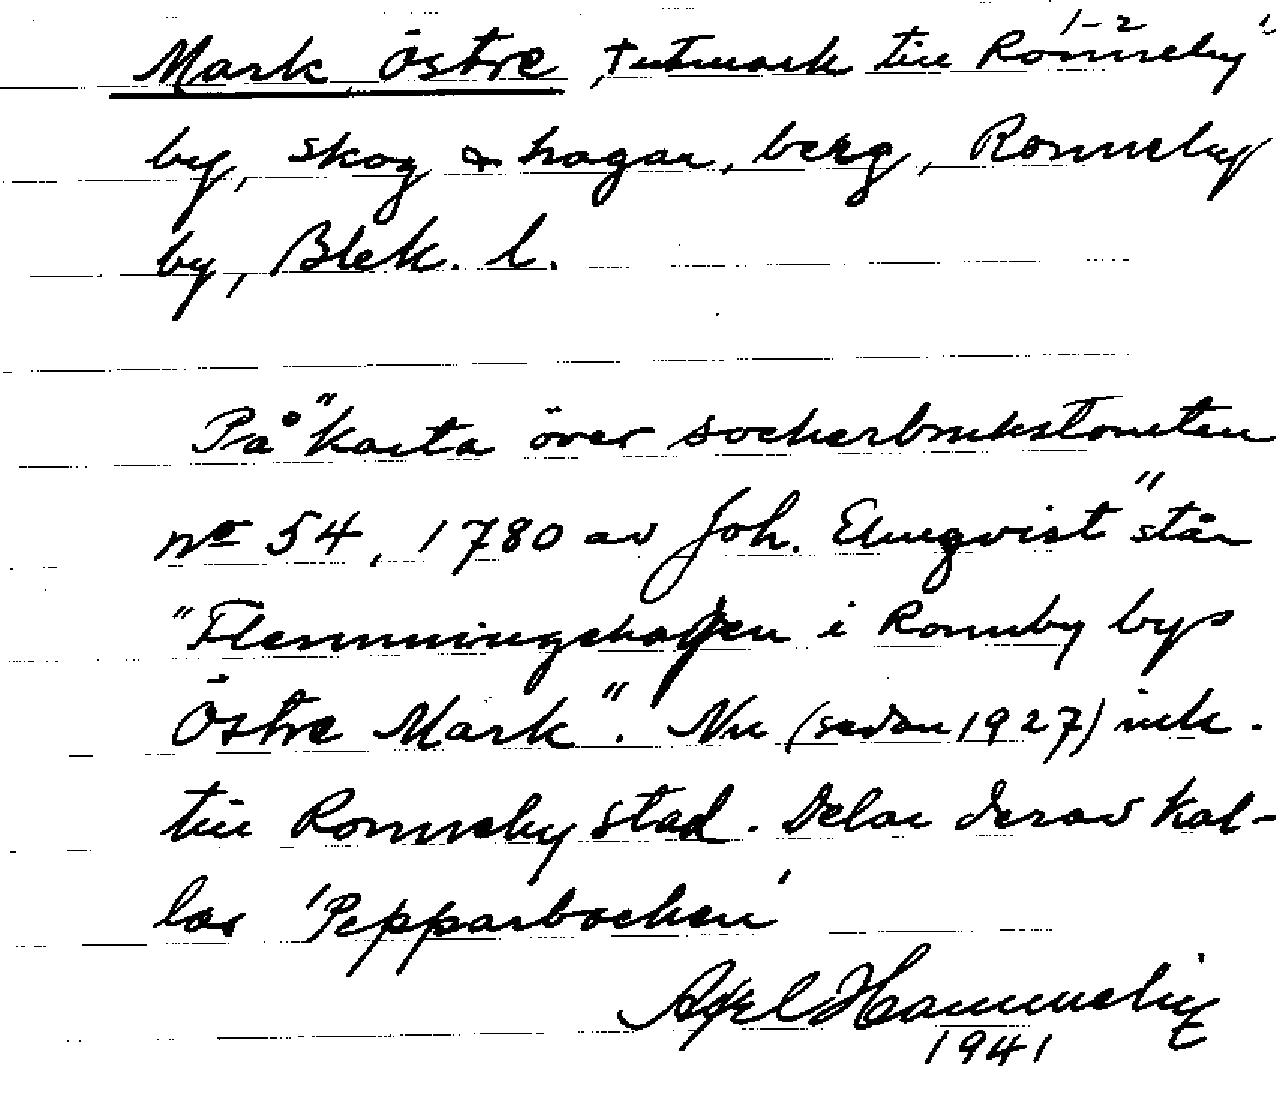 Mark, Östre, † utmark till Ronneby
by, skog & hagar, berg, Ronneby
by, Blek. l.
På "Karta över sockerbrukstomten
nº 54, 1780 av Joh. Elmqvist" står
"Flemmingshagen i Ronnby bys
Östre Mark". Nu (sedan 1927) ink.
till Ronneby stad. Delar derav kal-
las 'Pepparbacken'
Axel Hammelin
1941